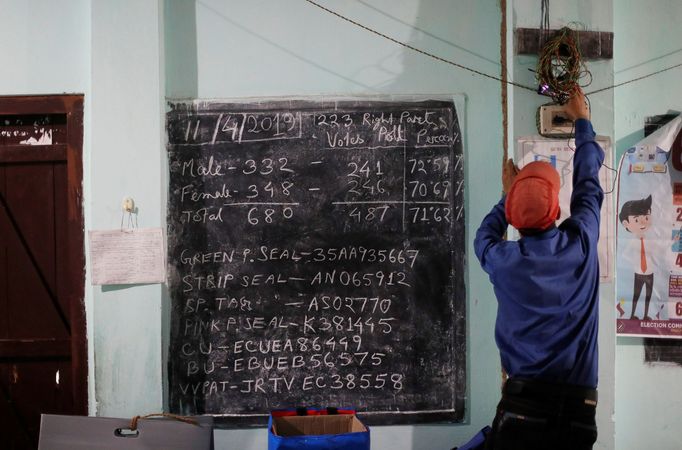 11/4/2019 223 Right Part
Votes Poll Percen%
Male - 332 - 241 72.59%
Female - 348 - 246 70.69%
Total 680 487 71.62%
GREEN P. SEAL - 35AA935667
STRIP SEAL - AN065912
SP. TAG - AS02770
PINK P. SEAL - K381445
CU - ECUEA86449
BU - EBUEB56575
VVPAT - JRTVEC38558
ELECTION COM